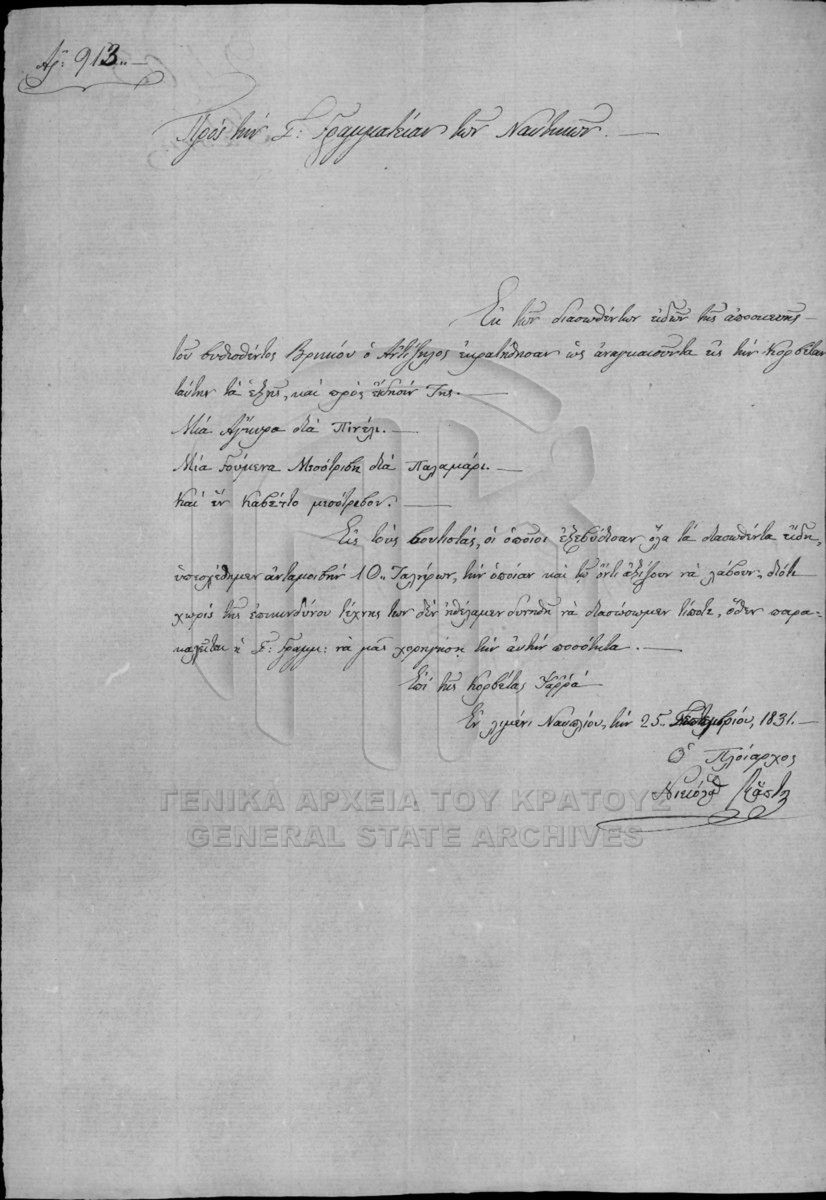 Αρ: 913.
Πρὸς τὴν Γ: Γραμματείαν τῶν Ναυτικῶν.
Ἐκ τῶν διασωθέντων εἰδῶν τῆς ἀποσκευῆς
τοῦ βυθισθέντος Βρικίου ὁ Ἀντίζηλος ἐκρατήθησαν ὡς ἀναγκαιοῦντα εἰς τὴν Κορβέταν
ταύτην τὰ ἑξῆς, καὶ πρὸς εἴδησίν Της.
Μιὰ Ἄγκυρα διὰ Πινέλι.
Μία Γούμενα Μεσότριβη διὰ Παλαμάρι.
Καὶ ἓν Καβέτζο μεσότριβον.
Εἰς τοὺς βουτιστάς, οἱ ὁποῖοι ἐξεβύθισαν ὅλα τὰ διασωθέντα εἴδη,
ὑπεσχέθημεν ἀνταμοιβὴν 10 Ταλήρων, τὴν ὁποίαν καὶ τῷ ὄντι ἀξίζουν νὰ λάβουν, διότι
χωρὶς τῆς ἐπικινδύνου τέχνης των δὲν ἠθέλαμεν δυνηθῆ νὰ διασώσωμεν τίποτε, ὅθεν παρα-
καλεῖται ἡ Γ: Γραμμ: νὰ μᾶς χορηγήσῃ τὴν αὐτὴν ποσότητα.
Ἐπὶ τῆς Κορβέτας Ψαρρά
Ἐν λιμένι Ναυπλίου, τὴν 25 Σεπτεμβρίου, 1831.
Ὁ Πλοίαρχος
ΓΕΝΙΚΑ ΑΡΧΕΙΑ ΤΟΥ ΚΡΑΤΟΥΣ
GENERAL STATE ARCHIVES